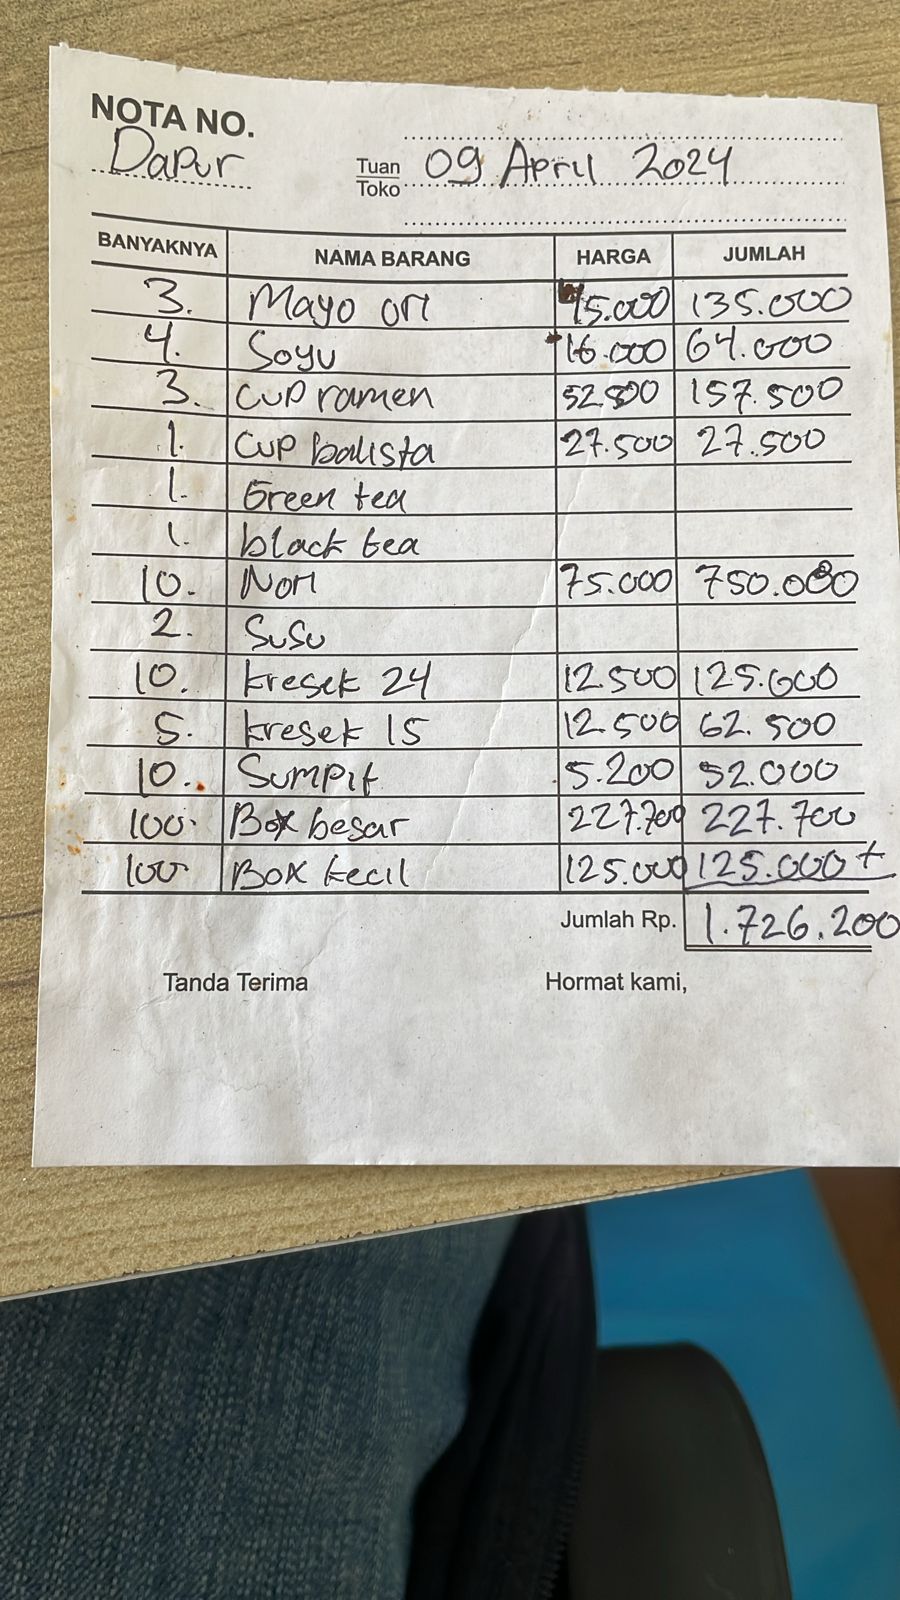 NOTA NO.
Dapur
Tuan
Toko
09 April 2024
BANYAKNYA NAMA BARANG HARGA JUMLAH
3. Mayo ori 45.000 135.000
4. Soyu 16.000 64.000
3. Cup ramen 52.500 157.500
1. Cup balista 27.500 27.500
1. Green tea
1. black tea
10. Nori 75.000 750.000
2. Susu
10. kresek 24 12.500 125.000
5. kresek 15 12.500 62.500
10. Sumpit 5.200 52.000
100. Box besar 227.700 227.700
100. Box kecil 125.000 125.000 +
Jumlah Rp. 1.726.200
Tanda Terima Hormat kami,